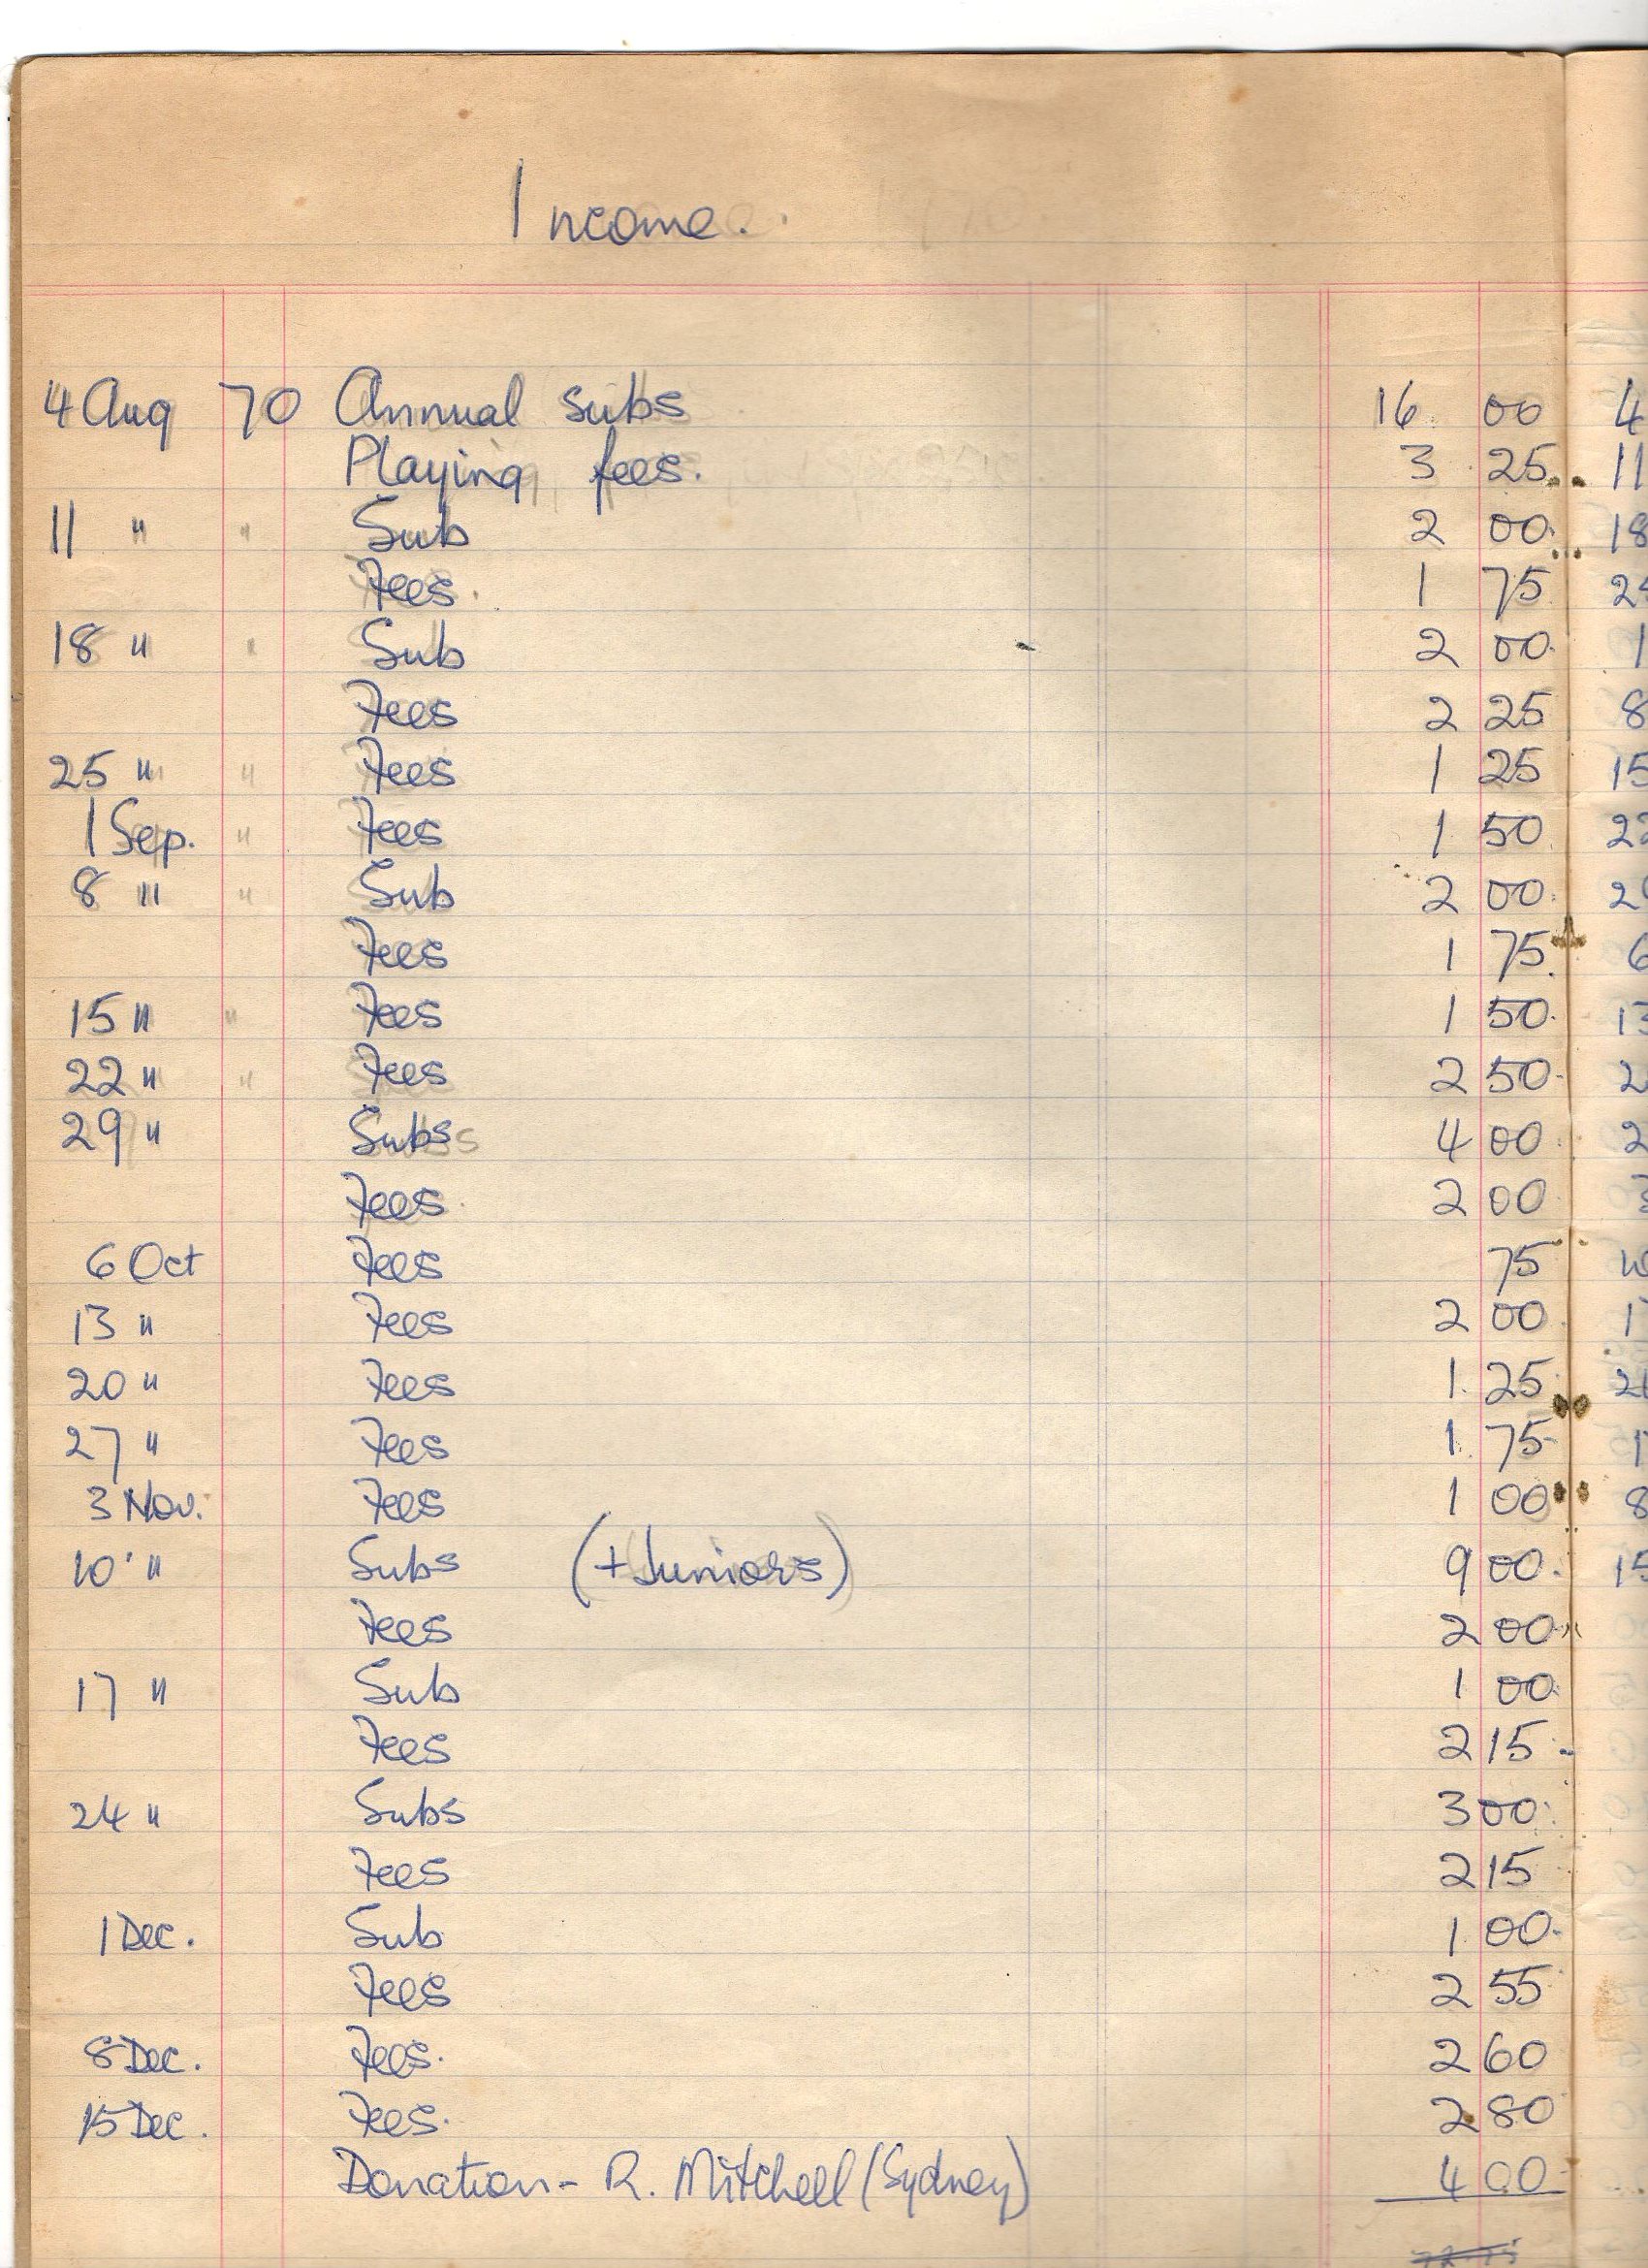 Income.
4 Aug 70 Annual subs 16 00 4
Playing fees. 3 25 11
11 " " Sub 2 00 18
Fees. 1 75
18 " " Sub 2 00 1
Fees 2 25 8
25 " " Fees 1 25 15
1 Sep. " Fees 1 50 22
8 " " Sub 2 00
Fees 1 75 6
15 " " Fees 1 50 13
22 " " Fees 2 50 2
29 " Subs 4 00 2
Fees. 2 00
6 Oct Fees 75 10
13 " Fees 2 00 1
20 " Fees 1.25
27 " Fees 1.75 1
3 Nov. Fees 1 00 8
10 " Subs (+ Juniors) 9 00 15
Fees 2 00
17 " Sub 1 00
Fees 2 15
24 " Subs 3 00
Fees 2 15
1 Dec. Sub 1 00
Fees 2 55
8 Dec. Fees. 2 60
15 Dec. Fees. 2 80
Donation - R. Mitchell (Sydney) 4 00